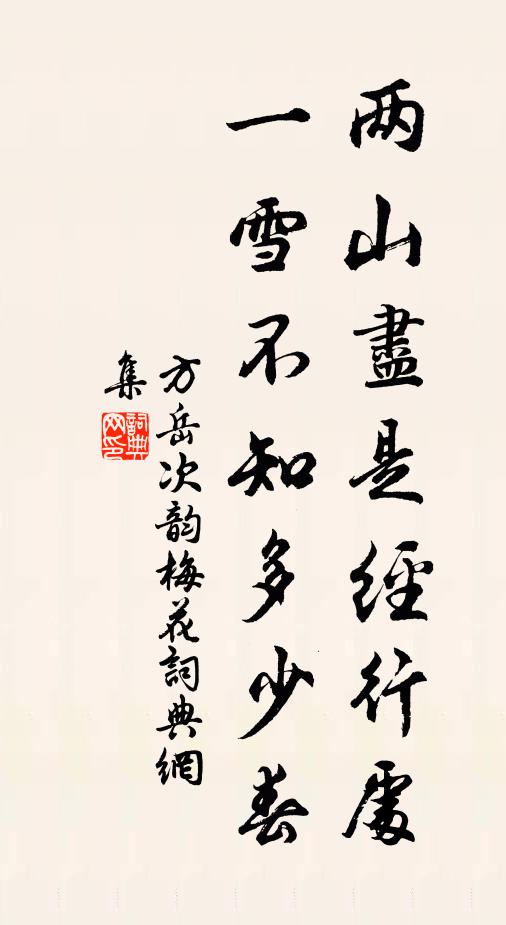 两山盡是經行處
一雪不知多少春
方岳次韵梅花詞典網
集
詞典
网印